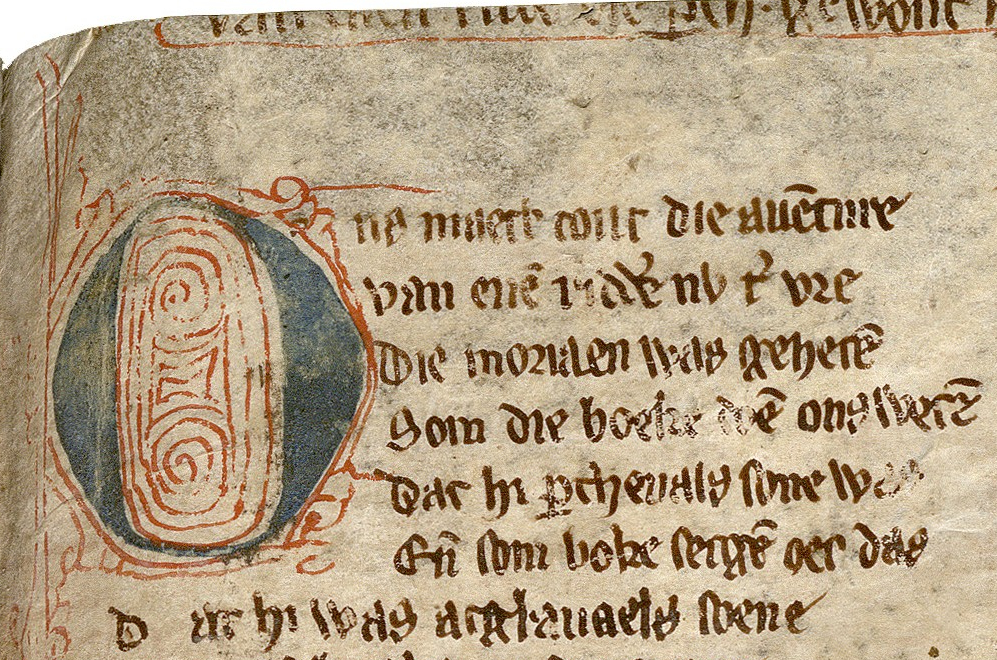 Ons maect cont die auēture
Van enē riddʼe nv tʼ vre
Die moriaen was gehetē
Som die boeke doē ons wetē
Dat hi pcheuals sone was
Eñ som boke seggē oec das
Dat hi was acglauaels sone